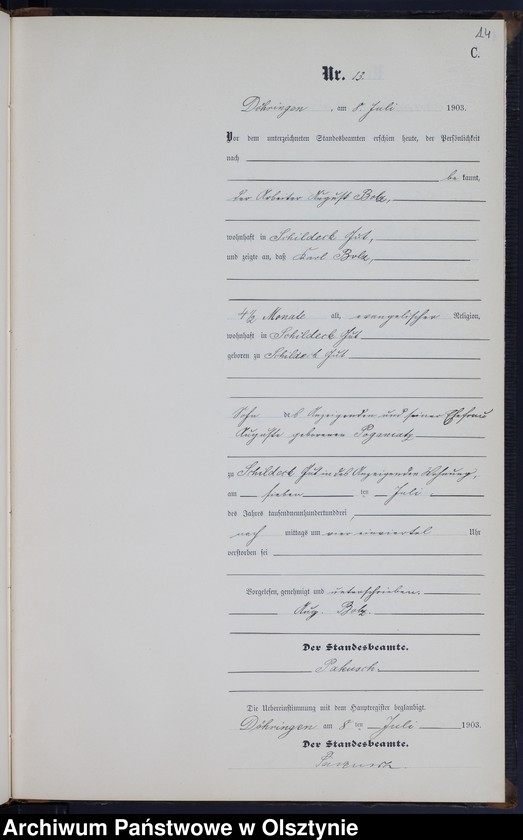 14
C.
Nr. 13.
Döhringen, am 8. Juli 1903.
Vor dem unterzeichneten Standesbeamten erschien heute, der Persönlichkeit
nach
bekannt,
der Arbeiter August Bolz,
wohnhaft in Schildeck Gut,
und zeigte an, daß Karl Bolz,
4 1/2 Monate alt, evangelischer Religion,
wohnhaft in Schildeck Gut
geboren zu Schildeck Gut
Sohn des Anzeigenden und seiner Ehefrau
Auguste geborenen
zu Schildeck Gut in des Anzeigenden Wohnung,
am sieben ten Juli
des Jahres tausendneunhundertunddrei,
nach mittags um vier einviertel Uhr
verstorben sei
Vorgelesen, genehmigt und unterschrieben.
Aug. Bolz.
Der Standesbeamte.
Die Uebereinstimmung mit dem Hauptregister beglaubigt.
Döhringen am 8 ten Juli 1903.
Der Standesbeamte.
Archiwum Państwowe w Olsztynie